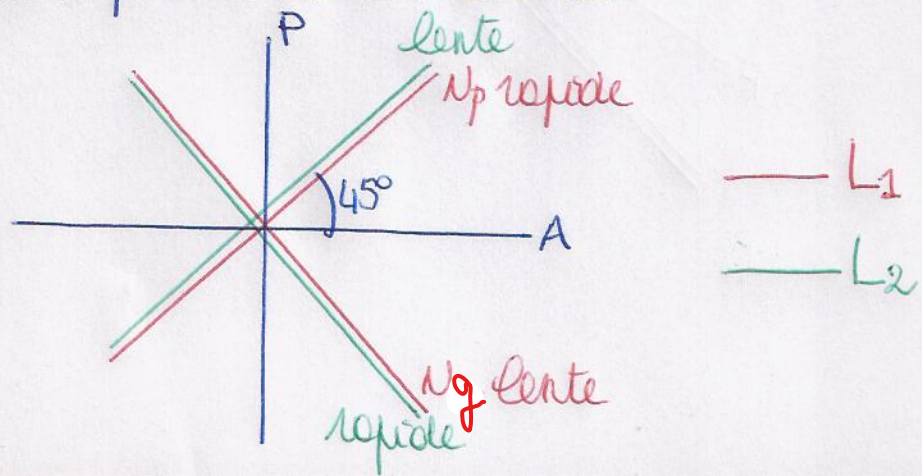 P
lente
Np rapide
45°
A
L1
L2
Ng lente
rapide